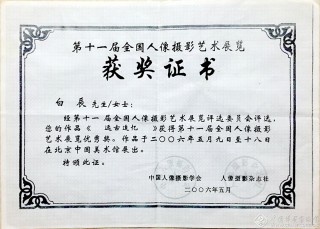 第十一届全国人像摄影艺术展览
获奖证书
白辰先生/女士：
经第十一届全国人像摄影艺术展览评选委员会评选，
您的作品《 远古追忆 》获得第十一届全国人像摄影
艺术展览优秀奖。作品于二〇〇六年五月九日至十八日
在北京中国美术馆展出。
特颁此证。
中国人像摄影学会 人像摄影杂志社
二〇〇六年五月